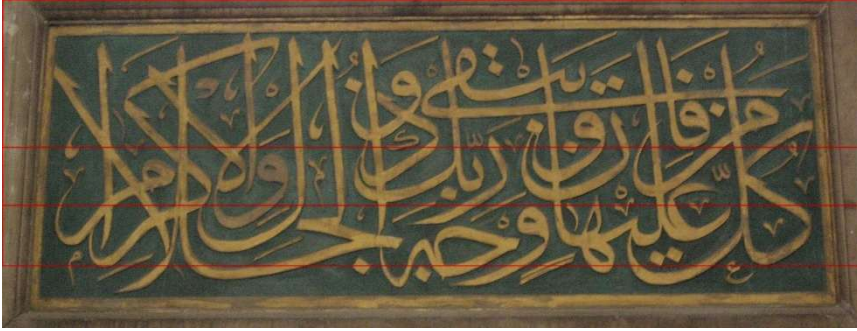 كل من عليها فان ويبقى وجه ربك ذو الجلال والاكرام